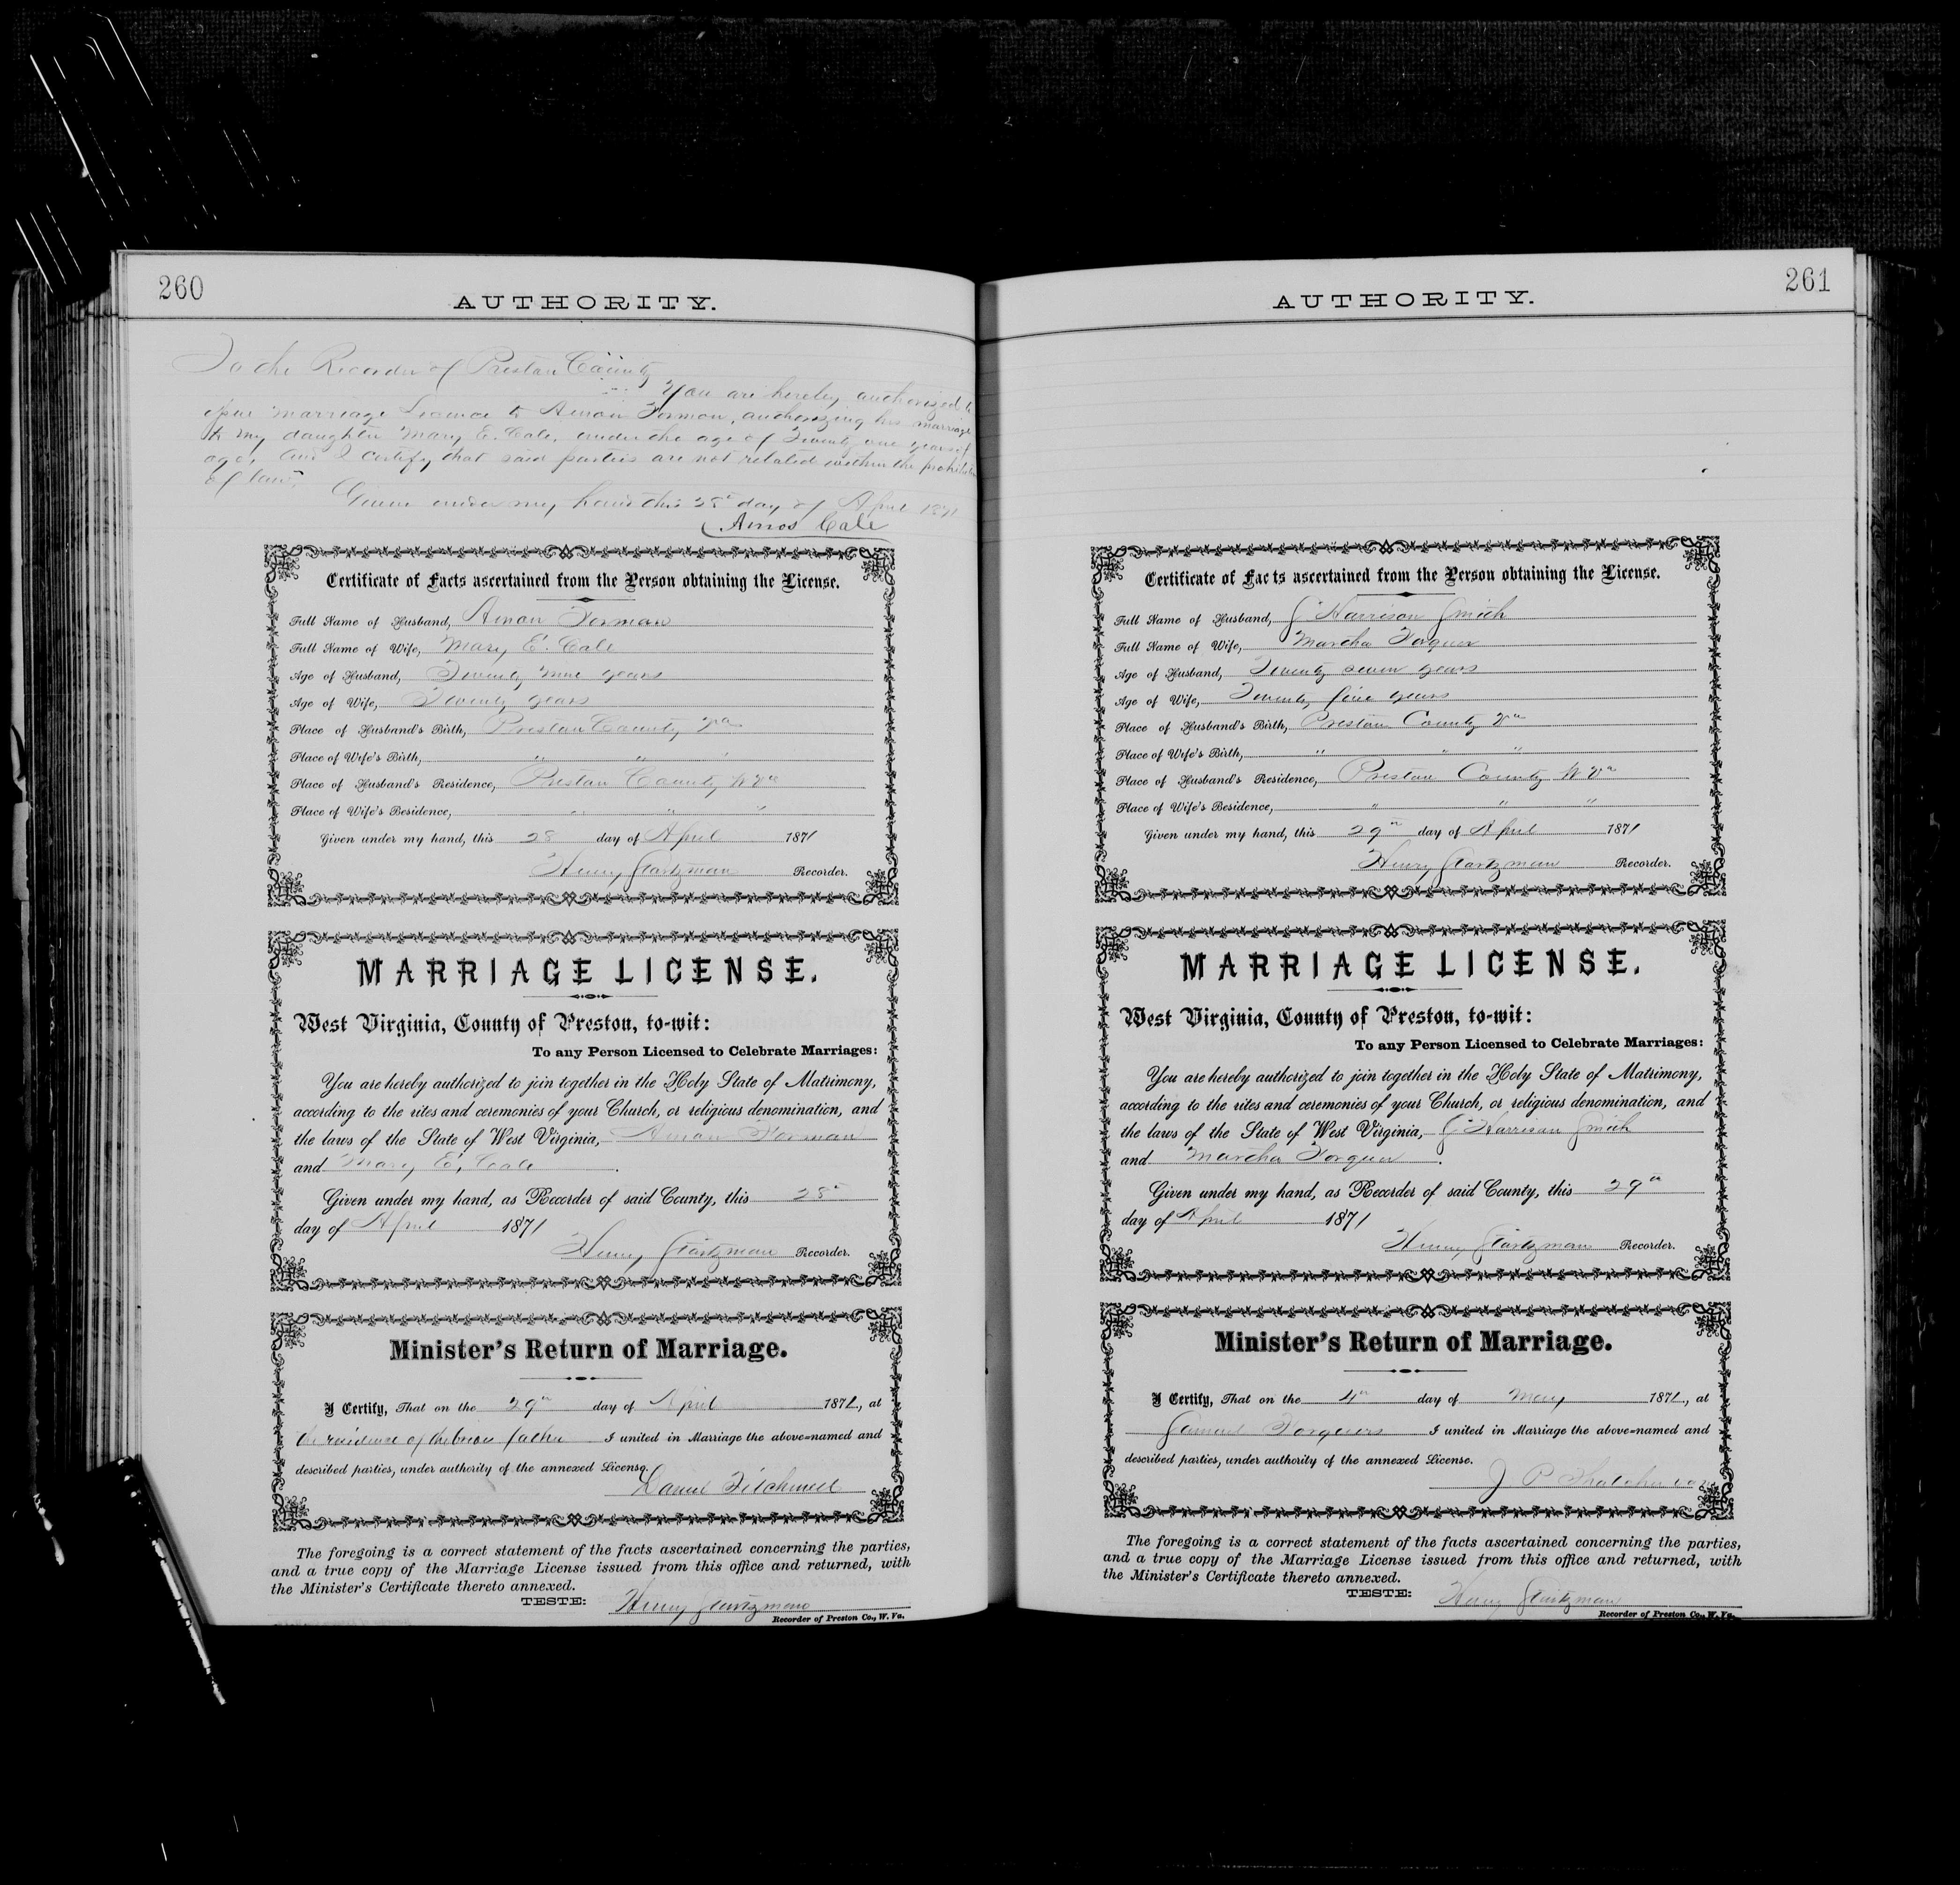 260
AUTHORITY.
To the Recorder of Preston County
You are hereby authorized to
issue marriage Licence to Amon Forman, authorizing his marriage
to my daughter Mary E. Cale, under the age of Twenty one years of
age, and I certify that said parties are not related within the prohibition
of law.
Given under my hand this 28th day of April 1871
Amos Cale
Certificate of Facts ascertained from the Person obtaining the License.
Full Name of Husband, Amon Forman
Full Name of Wife, Mary E. Cale
Age of Husband, Twenty nine years
Age of Wife, Twenty years
Place of Husband's Birth, Preston County Va
Place of Wife's Birth, " " "
Place of Husband's Residence, Preston County W Va
Place of Wife's Residence, " " "
Given under my hand, this 28 day of April 1871
Henry Startzman Recorder.
MARRIAGE LICENSE.
West Virginia, County of Preston, to-wit:
To any Person Licensed to Celebrate Marriages:
You are hereby authorized to join together in the Holy State of Matrimony,
according to the rites and ceremonies of your Church, or religious denomination, and
the laws of the State of West Virginia, Amon Forman
and Mary E. Cale .
Given under my hand, as Recorder of said County, this 28th
day of April 1871
Henry Startzman Recorder.
Minister's Return of Marriage.
I Certify, That on the 29th day of April 1871, at
the residence of the brides father I united in Marriage the above-named and
described parties, under authority of the annexed License.
Daniel
The foregoing is a correct statement of the facts ascertained concerning the parties,
and a true copy of the Marriage License issued from this office and returned, with
the Minister's Certificate thereto annexed.
TESTE: Henry Startzman
Recorder of Preston Co., W. Va.
261
AUTHORITY.
Certificate of Facts ascertained from the Person obtaining the License.
Full Name of Husband, J Harrison Smith
Full Name of Wife, Martha Forquer
Age of Husband, Twenty seven years
Age of Wife, Twenty five years
Place of Husband's Birth, Preston County Va
Place of Wife's Birth, " " "
Place of Husband's Residence, Preston County W Va
Place of Wife's Residence, " " "
Given under my hand, this 29th day of April 1871
Henry Startzman Recorder.
MARRIAGE LICENSE.
West Virginia, County of Preston, to-wit:
To any Person Licensed to Celebrate Marriages:
You are hereby authorized to join together in the Holy State of Matrimony,
according to the rites and ceremonies of your Church, or religious denomination, and
the laws of the State of West Virginia, J Harrison Smith
and Martha Forquer .
Given under my hand, as Recorder of said County, this 29th
day of April 1871
Henry Startzman Recorder.
Minister's Return of Marriage.
I Certify, That on the 4th day of May 1871, at
Samuel Forquers I united in Marriage the above-named and
described parties, under authority of the annexed License.
J P Thatcher
The foregoing is a correct statement of the facts ascertained concerning the parties,
and a true copy of the Marriage License issued from this office and returned, with
the Minister's Certificate thereto annexed.
TESTE: Henry Startzman
Recorder of Preston Co., W. Va.